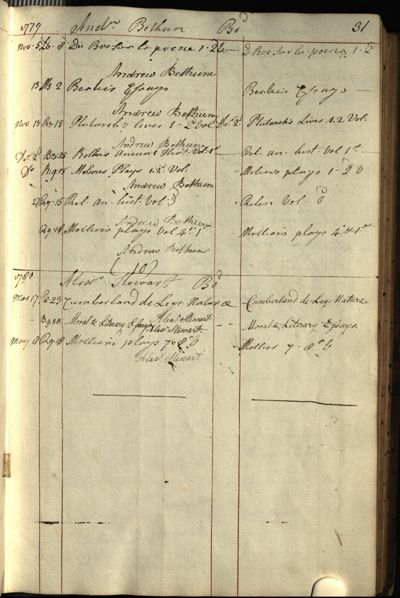 1779 Andw Bethun Bd 31
Nov 5 Du Bos Sur la poesia 1. 2 D Bos Sur la poesia 1. 2
Andrew Bethune
13 2 Beaties Essays Beaties Essays
Andrew Bethune
Nov 13 Plutarchs lives 1. 2 Vol Plutarchs Lives 1. 2 Vol.
Andrew Bethune
Rollins Ancient Hist Vol 1st Rol. an. hist vol 1st
Molieres Plays 1. 2. Vol. Moliers plays 1. 2
Andrew Bethune
27 15 Rol. an. hist. vol 3d Rolin Vol. 3d
Andrew Bethune
Molliers plays vol 4th 1 Molliers plays 4th 1st
Andrew Bethun
1780 Alexr Stewart Bd
Mar 17 23 Cumberland de Legs Naturæ Cumberland de Leg: Naturæ
Alexr Stewart
Moral & Literary Essays Moral & Literary Essays
Alexr Stewart
May 8 18 Molliers plays 7. 8. 6 Mollier 7. 8. 6
Alexr Stewart